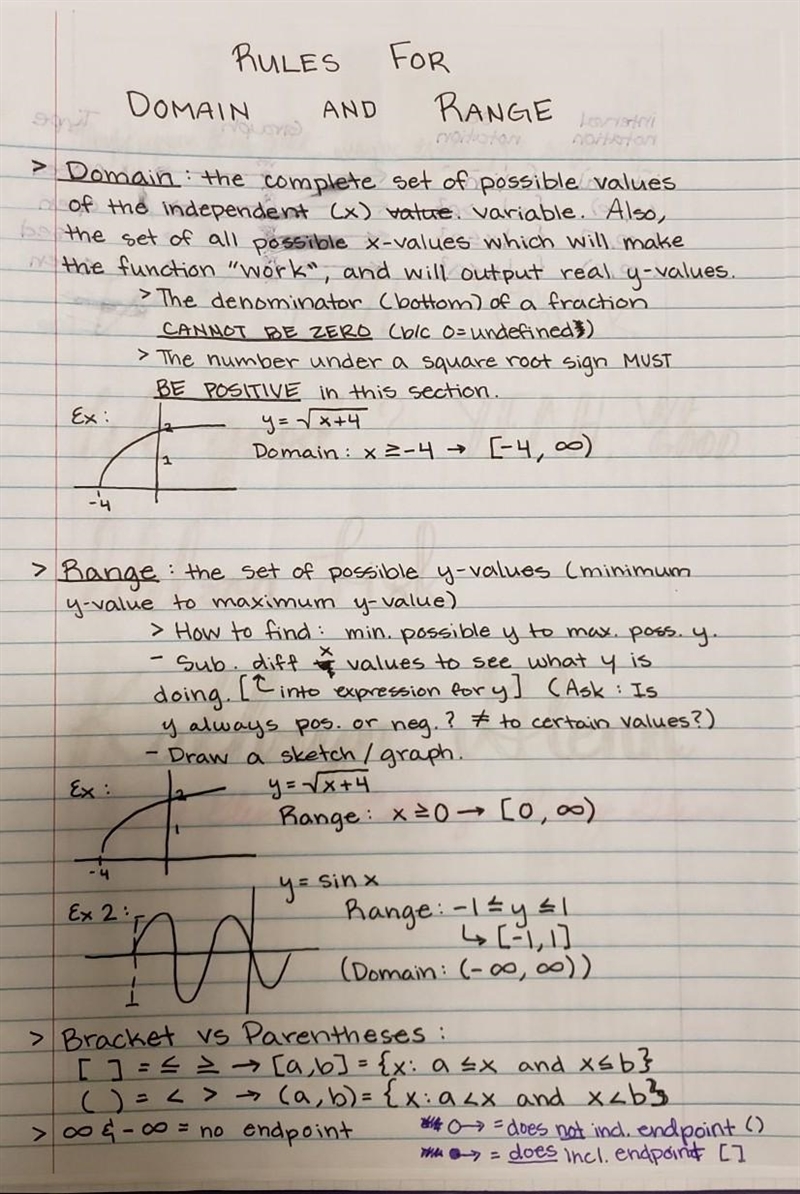 RULES FOR
DOMAIN AND RANGE
> Domain: the complete set of possible values
of the independent (x) value. variable. Also,
the set of all possible x-values which will make
the function "work", and will output real y-values.
> The denominator (bottom) of a fraction
CANNOT BE ZERO (b/c 0=undefined)
> The number under a square root sign MUST
BE POSITIVE in this section.
Ex: y=√x+4
2
Domain: x≥-4 → [-4, ∞)
1
-4
> Range: the set of possible y-values (minimum
y-value to maximum y-value)
> How to find: min. possible y to max. poss. y.
- Sub. diff x values to see what y is
doing. [↑ into expression for y] (Ask: Is
y always pos. or neg.? ≠ to certain values?)
- Draw a sketch/graph.
Ex: y=√x+4
2
Range: x≥0 → [0, ∞)
1
-4
y= sin x
Ex 2: Range: -1≤y≤1
↳ [-1,1]
(Domain: (-∞, ∞))
> Bracket vs Parentheses:
[ ] = ≤ ≥ → [a,b] = {x: a≤x and x≤b}
( ) = < > → (a,b)= {x: a<x and x<b}
> ∞ & -∞ = no endpoint
o→ = does not incl. endpoint ()
•→ = does incl. endpoint []